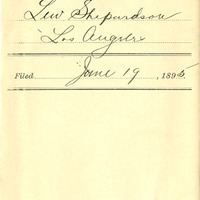 Lew Shepardson
Los Angeles
Filed June 19, 1895.